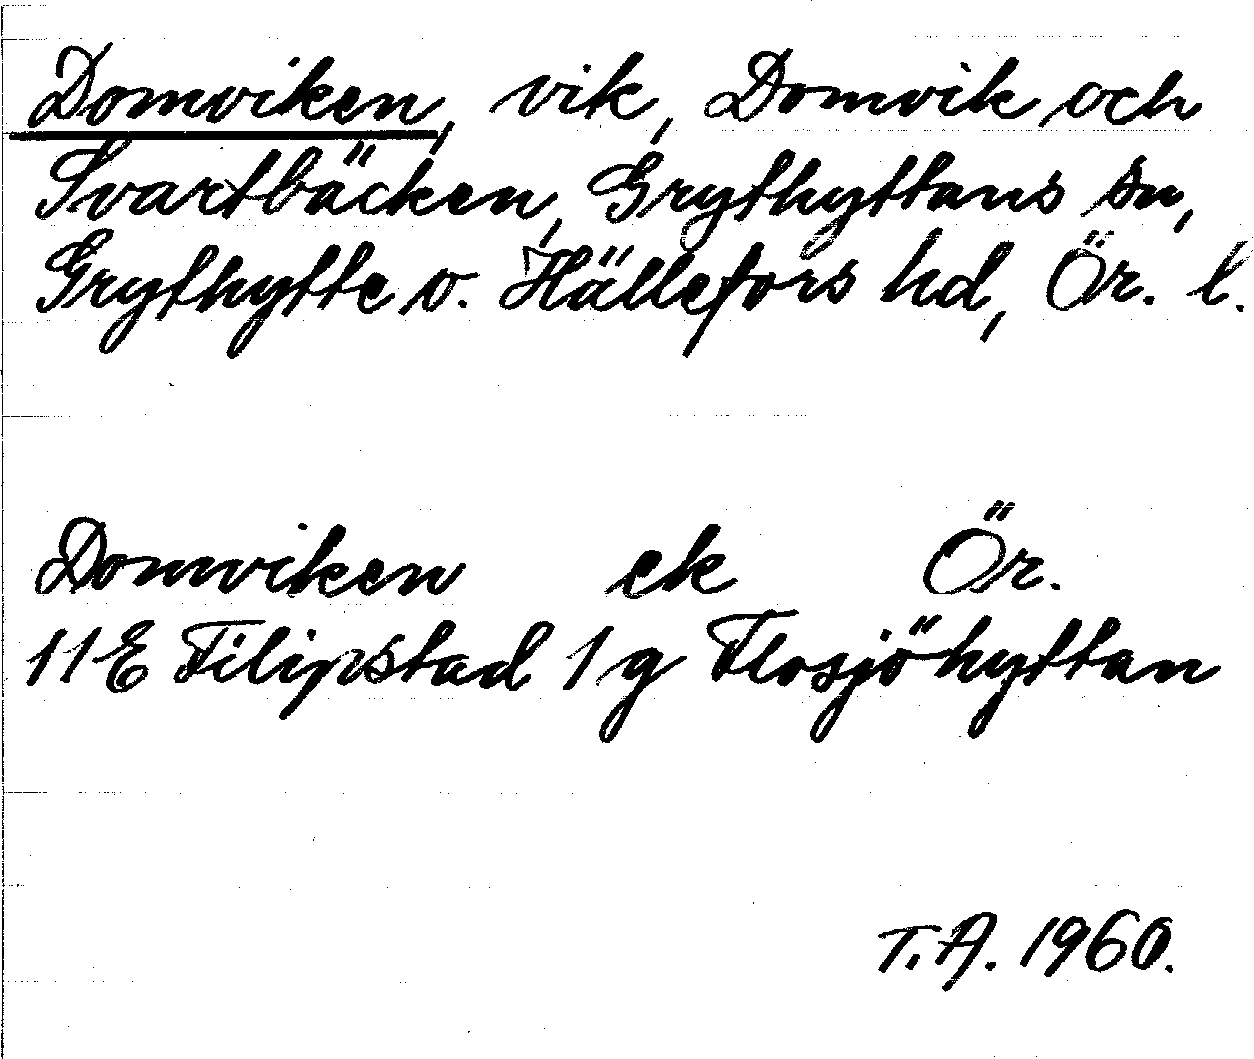 Domviken, vik, Domvik och
Svartbäcken, Grythyttans sn,
Grythytte o. Hällefors hd, Ör. l.
Domviken ek Ör.
11E Filipstad 1g Flosjöhyttan
T.A. 1960.